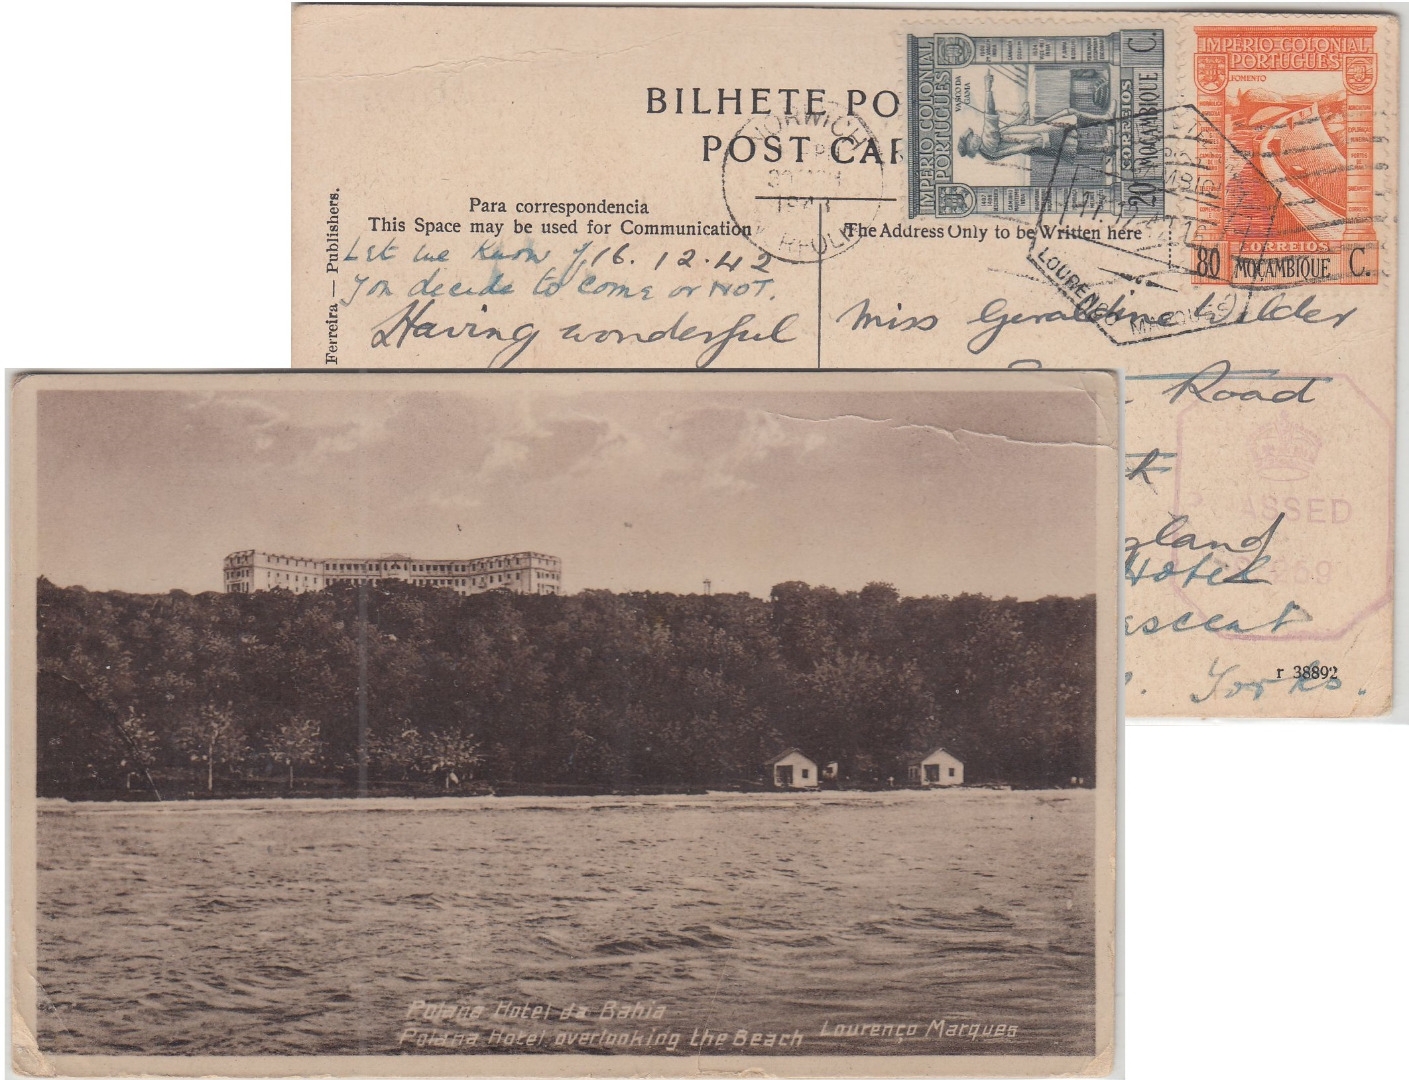 BILHETE PO
POST CAR
Para correspondencia
This Space may be used for Communication
The Address Only to be Written here
Ferreira — Publishers.
IMPÉRIO COLONIAL
PORTUGUÊS
VASCO DA
GAMA
CORREIOS
20 MOÇAMBIQUE C.
IMPÉRIO COLONIAL
PORTUGUÊS
FOMENTO
CORREIOS
80 MOÇAMBIQUE C.
NORWICH
1943
LOURENÇO MARQUES
Let me know if 16.12.42
You decide to come or NOT.
Having wonderful
Miss Geraldine
Road
gland
Hotel
escent
Yorks.
PASSED
r 38892
Polana Hotel da Bahia
Polana Hotel overlooking the Beach Lourenço Marques